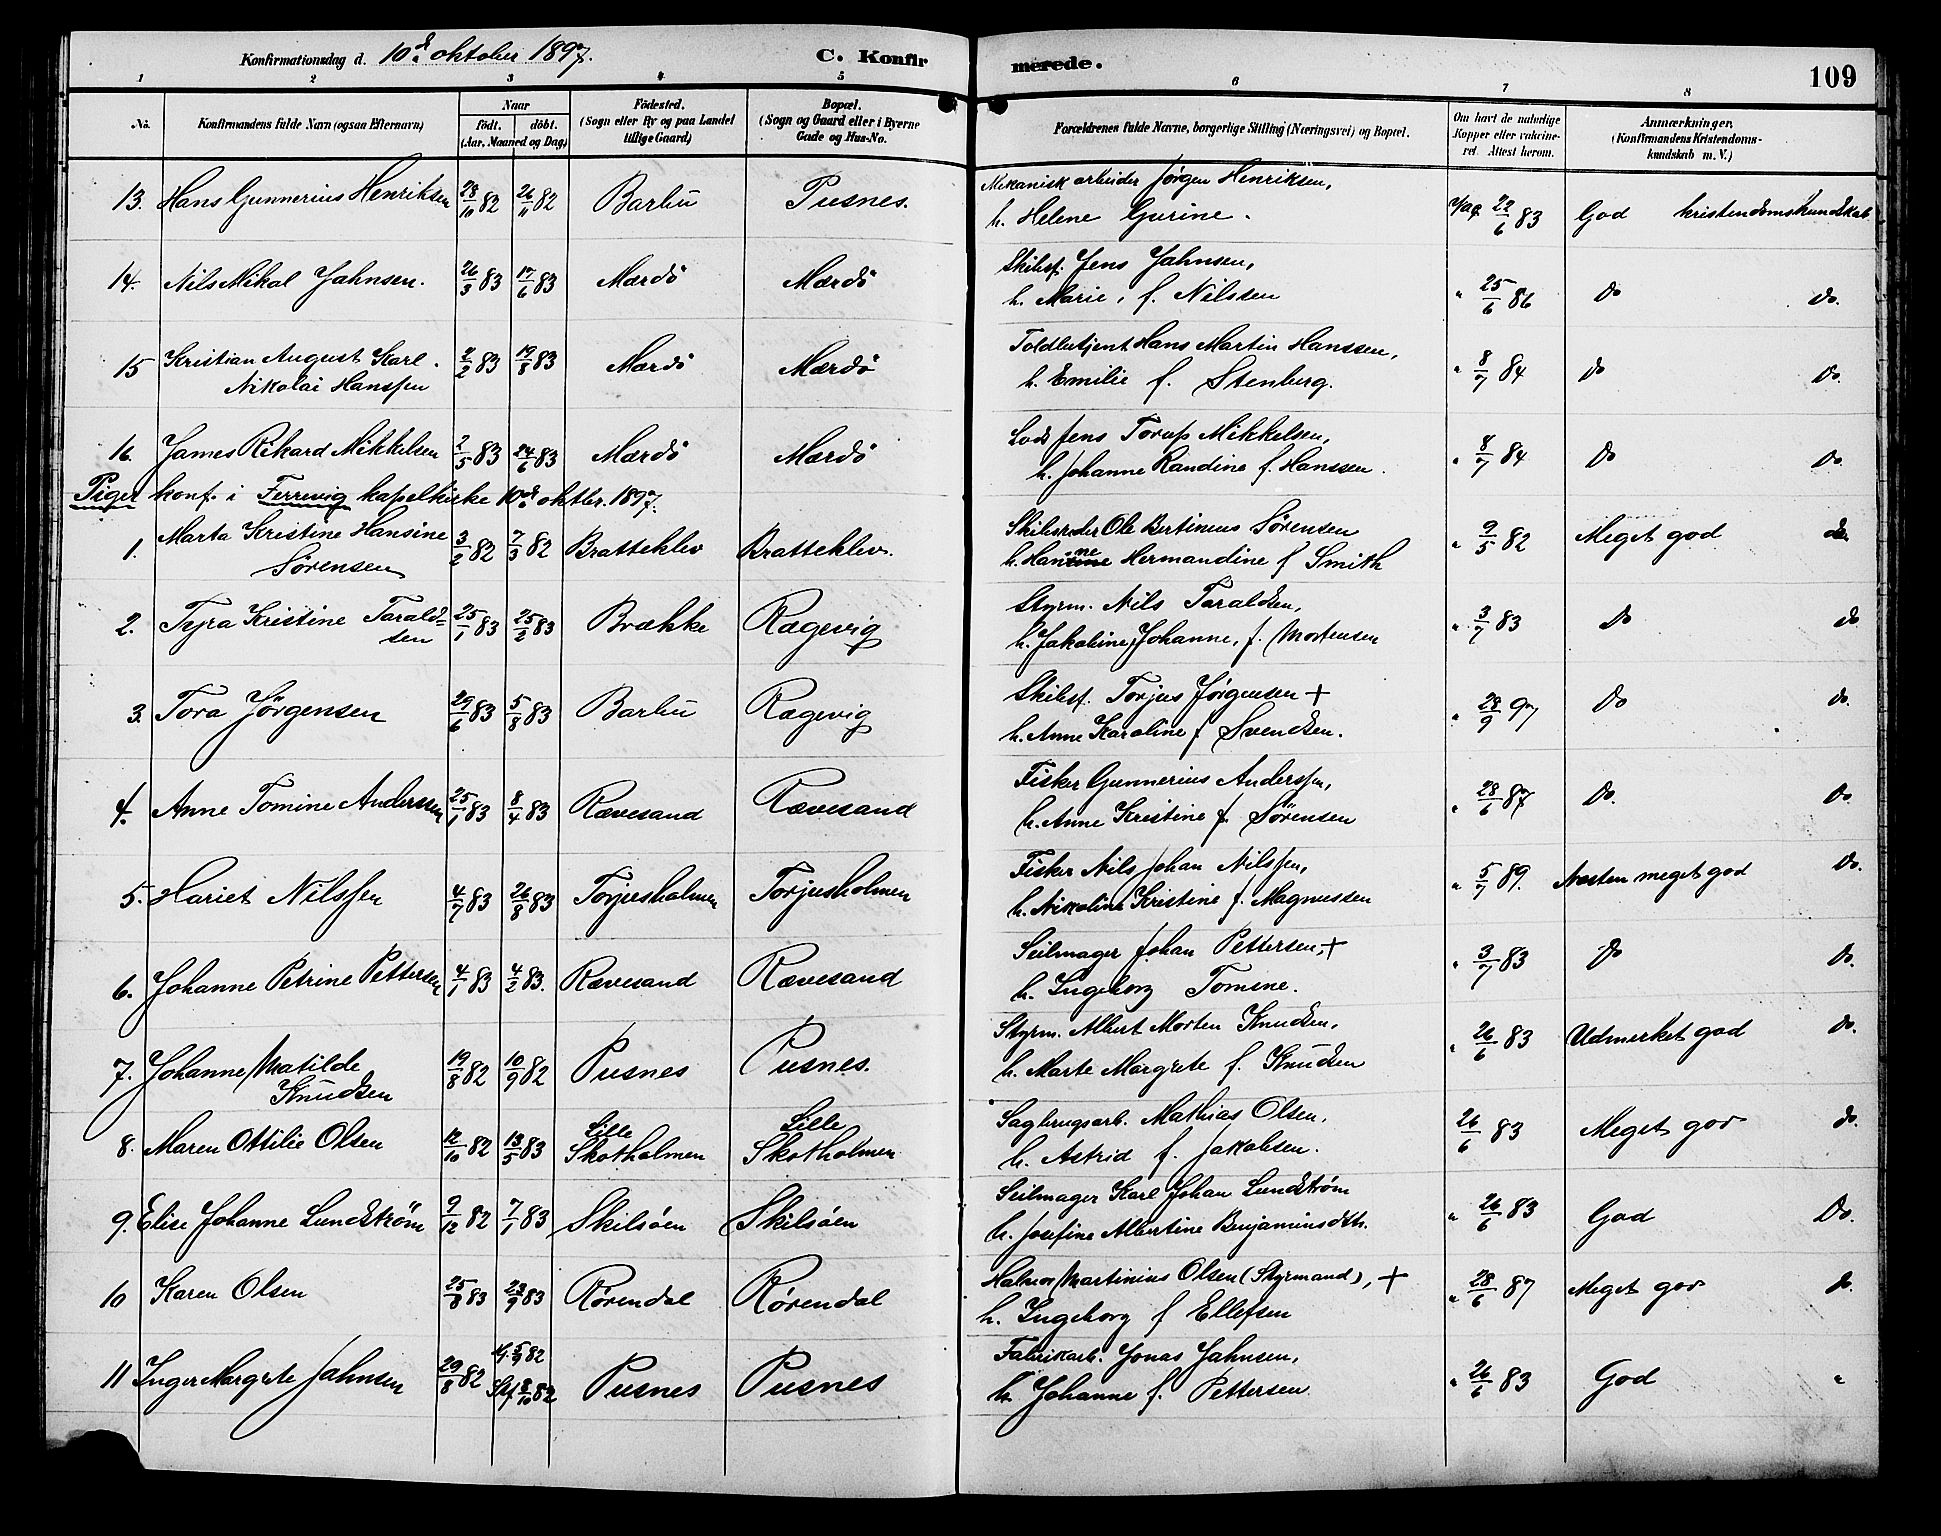 Konfirmationsdag d. 10d oktober 1897. C. Konfirmerede. 109
1 2 3 4 5 6 7 8
No. Konfirmandens fulde Navn (ogsaa Efternavn) Naar født. døbt. (Aar, Maaned og Dag) Födested. (Sogn eller By og paa Landet tillige Gaard) Bopæl. (Sogn og Gaard eller i Byerne Gade og Hus-No. Forældrenes fulde Navne, borgerlige Stilling (Næringsvei) og Bopæl. Om havt de naturlige Kopper eller vaccineret. Attest herom. Anmærkninger, (Konfirmandens Kristendomskundskab m. V.)
13. Hans Gunnerius Henriksen 28/10 82 26/11 82 Barbu Pusnes. Mekanisk arbeider Jørgen Henriksen, vac 22/6 83 God kristendomskundskab
h. Helene Gurine.
14. Nils Mikal Jahnsen. 26/3 83 17/6 83 Mærdö Mærdö Skibsf. Jens Jahnsen, " 25/6 86 do do.
h. Marie, f. Nilssen
15 Kristian August Karl 2/2 83 19/8 83 Mærdö Mærdö Toldbetjent Hans Martin Hanssen, " 8/7 84 do do.
Nikolai Hanssen h. Emilie f. Stenberg.
16. James Rikard Mikkelsen 2/5 83 24/6 83 Mærdö Mærdö Lods Jens Torup Mikkelsen, " 8/7 84 do do.
h. Johanne Randine f. Hanssen.
Piger konf. i Ferrevig kapelkirke 10de oktbr. 1897.
1. Marta Kristine Hansine 3/2 82 7/3 82 Bratteklev Bratteklev. Skibsreder Ole Bertinius Sörensen " 9/5 82 Meget god do
Sörensen h. Hanne Hermandine f Smith
2. Tyra Kristine Tarald= 25/1 83 25/2 83 Brække Rægevig Styrm. Nils Taraldsen, " 3/7 83 do do
sen h. Jakobine Johanne, f. Mortensen
3. Tora Jörgensen 29/6 83 5/8 83 Barbu Rægevig Skibsf. Torjus Jörgensen + " 28/9 97 do do.
h. Anne Karoline f Svendsen.
4. Anne Tomine Anderssen 25/1 83 8/4 83 Rævesand Rævesand Fisker Gunnerius Anderssen, " 28/6 87 do. do.
h. Anne Kristine f. Sörensen
5. Hariet Nilssen 4/7 83 26/8 83 Torjusholmen Torjusholmen Fisker Nils Johan Nilssen, " 5/7 89. Næsten meget god do.
h. Nikoline Kristine f. Magnussen
6. Johanne Petrine Pettersen 4/1 83 4/2 83. Rævesand Rævesand Seilmager Johan Pettersen, + " 3/7 83 do do.
h. Ingeborg Tomine.
7. Johanne Matilde 19/8 82 10/9 82 Pusnes Pusnes. Styrm. Albert Morten Knudsen, " 26/6 83 Udmerket god do.
Knudsen h. Marte Margrete f. Knudsen
8. Maren Ottilie Olsen 12/10 82 13/5 83 Lille Skotholmen Lille Skotholmen Sagbrugsarb. Mathias Olsen, 26/6 83 Meget god do.
h. Astrid f. Jakobsen.
9. Elise Johanne Lundström 9/12 82 7/1 83 Skilsöen Skilsöen Seilmager Karl Johan Lundström " 26/6 83 God Do.
h. Josefine Albertine Benjaminsdtr.
10 Karen Olsen 25/8 83 23/9 83 Rörendal Rörendal Halvor Martinius Olsen (Styrmand), + " 28/6 87 Meget god do.
h. Ingeborg f Ellefsen
11 Inger Margrete Jahnsen 29/8 82 5/9 82 8/10 82 Pusnes Pusnes Fabrikarb. Jonas Jahnsen, " 26/6 83 God "
h. Johanne f. Pettersen